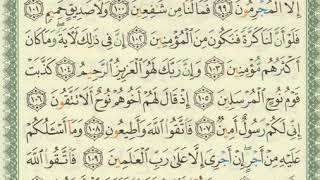 إِلَّا الْمُجْرِمُونَ ٩٩ فَمَا لَنَا مِنْ شَافِعِينَ ١٠٠ وَلَا صَدِيقٍ حَمِيمٍ ١٠١
فَلَوْ أَنَّ لَنَا كَرَّةً فَنَكُونَ مِنَ الْمُؤْمِنِينَ ١٠٢ إِنَّ فِي ذَٰلِكَ لَآيَةً وَمَا كَانَ
أَكْثَرُهُمْ مُؤْمِنِينَ ١٠٣ وَإِنَّ رَبَّكَ لَهُوَ الْعَزِيزُ الرَّحِيمُ ١٠٤ كَذَّبَتْ
قَوْمُ نُوحٍ الْمُرْسَلِينَ ١٠٥ إِذْ قَالَ لَهُمْ أَخُوهُمْ نُوحٌ أَلَا تَتَّقُونَ ١٠٦
إِنِّي لَكُمْ رَسُولٌ أَمِينٌ ١٠٧ فَاتَّقُوا اللَّهَ وَأَطِيعُونِ ١٠٨ وَمَا أَسْأَلُكُمْ
عَلَيْهِ مِنْ أَجْرٍ إِنْ أَجْرِيَ إِلَّا عَلَىٰ رَبِّ الْعَالَمِينَ ١٠٩ فَاتَّقُوا اللَّهَ